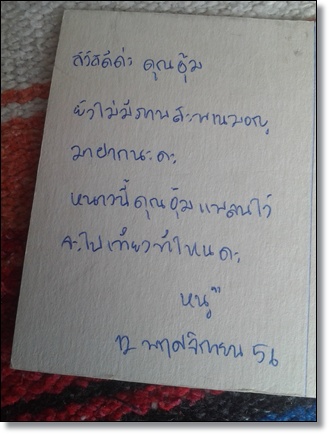 สวัสดีค่ะ คุณอุ้ม
ยังไม่มีภาพสะพานมอญ
มาฝากนะคะ
หนาวนี้คุณอุ้มแพลนไว้
จะไปเที่ยวที่ไหนคะ
หนู
12 พฤศจิกายน 56